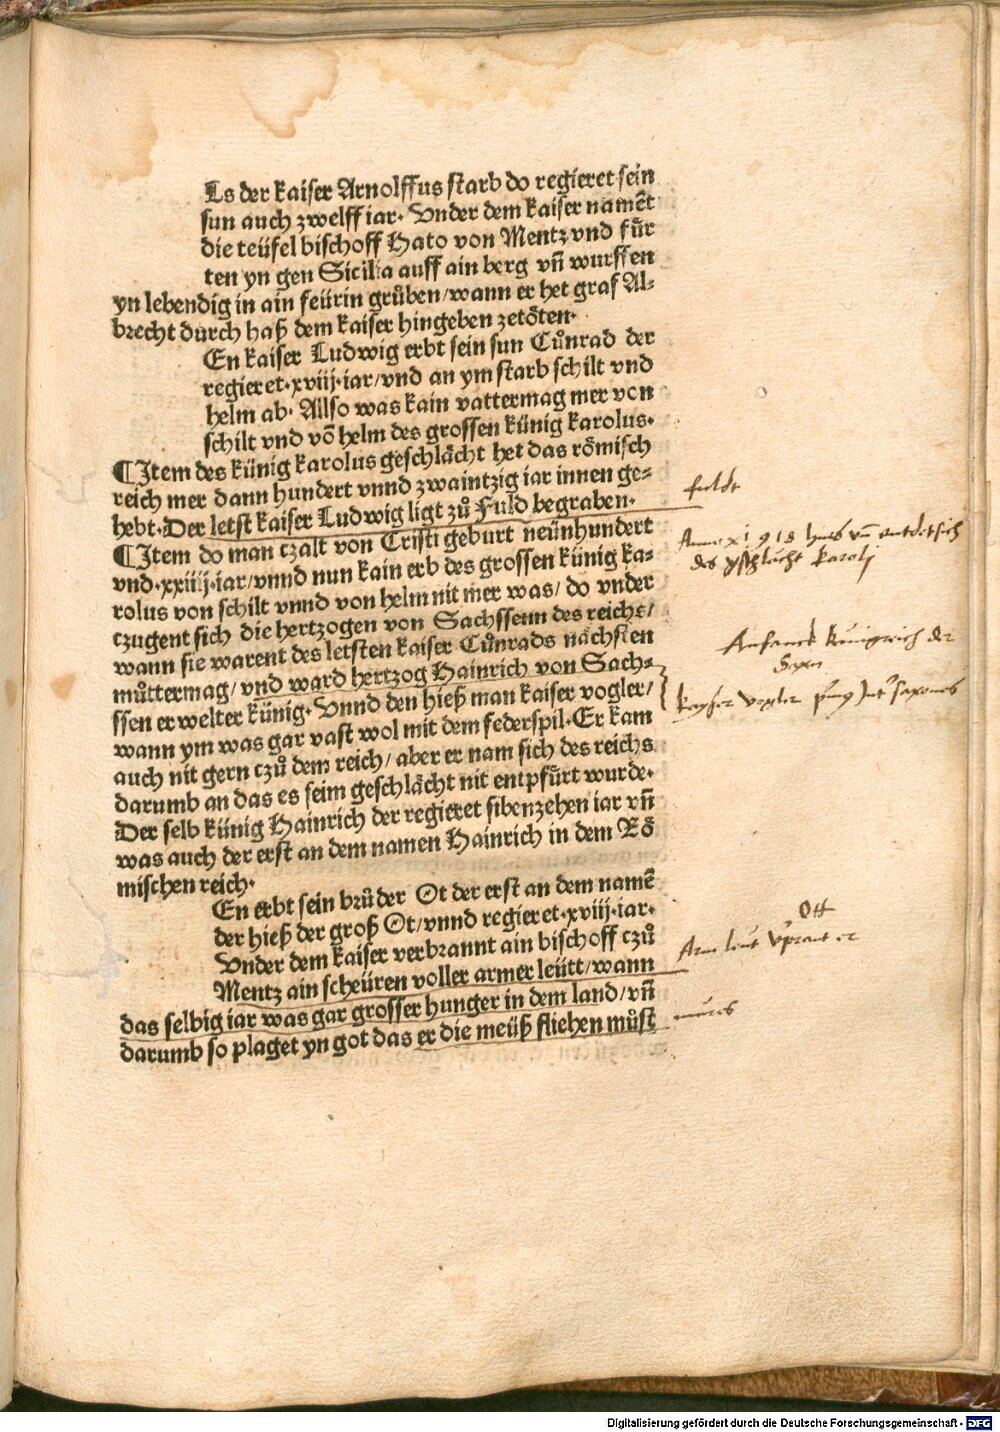 Ls der kaiser Arnolffus starb do regieret sein
sun auch zwelff iar. Vnder dem kaiser namēt
die teüfel bischoff Hato von Mentz vnd fůr
ten yn gen Sicilia auff ain berg vñ wurffen
yn lebendig in ain feürin grůben/wann er het graf Al-
brecht durch haß dem kaiser hingeben zetöten.
En kaiser Ludwig erbt sein sun Cůnrad der
regieret.xviij.iar/vnd an ym starb schilt vnd
helm ab. Allso was kain vattermag mer von
schilt vnd vō helm des grossen künig karolus.
¶Item des künig karolus geschlächt het das römisch
reich mer dann hundert vnnd zwaintzig iar innen ge-
hebt.Der letst kaiser Ludwig ligt zů Fuld begraben.
fuldt
¶Item do man czalt von Cristi geburt neünhundert
vnd.xxiiij.iar/vnnd nun kain erb des grossen künig ka-
rolus von schilt vnnd von helm nit mer was/ do vnder
czugent sich die hertzogen von Sachssenn des reichs/
wann sie warent des letsten kaiser Cůnrads nächsten
můttermag/ vnd ward hertzog Hainrich von Sach-
ssen er welter künig. Vnnd den hieß man kaiser vogler/
wann ym was gar vast wol mit dem federspil.Er kam
auch nit gern czů dem reich/ aber er nam sich des reichs
darumb an das es seim geschlächt nit entpfürt wurde.
Der selb künig Hainrich der regieret sibenzehen iar vñ
was auch der erst an dem namen Hainrich in dem Rö
mischen reich.
des gschlächt karolj
Anfanck künigreich der
Saxn
En erbt sein brůder Ot der erst an dem namē
der hieß der groß Ot/vnnd regieret.xviij.iar.
Vnder dem kaiser verbrannt ain bischoff czů
Mentz ain scheüren voller armer leütt/wann
das selbig iar was gar grosser hunger in dem land/vñ
darumb so plaget yn got das er die meüß fliehen můst
Ott
Arm leut
mures
Digitalisierung gefördert durch die Deutsche Forschungsgemeinschaft - DFG